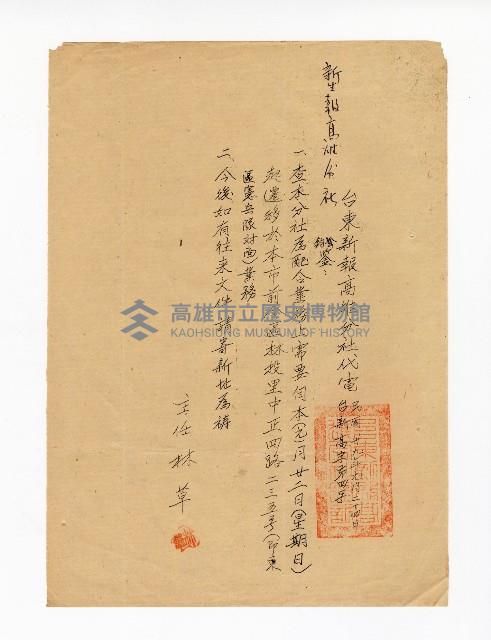 台東新報高雄分社代電
民國卅九年元月二十四日
台新高字第四号
新生報高雄分社
公鑒:
一、查本分社為配合業務上需要自本(元)月廿二日(星期日)
起遷移於本市前金區林投里中正四路二三五号(即東
區憲兵隊對面)業務
二、今後如有往來文件請寄新址為禱
主任 林草
高雄市立歷史博物館
KAOHSIUNG MUSEUM OF HISTORY